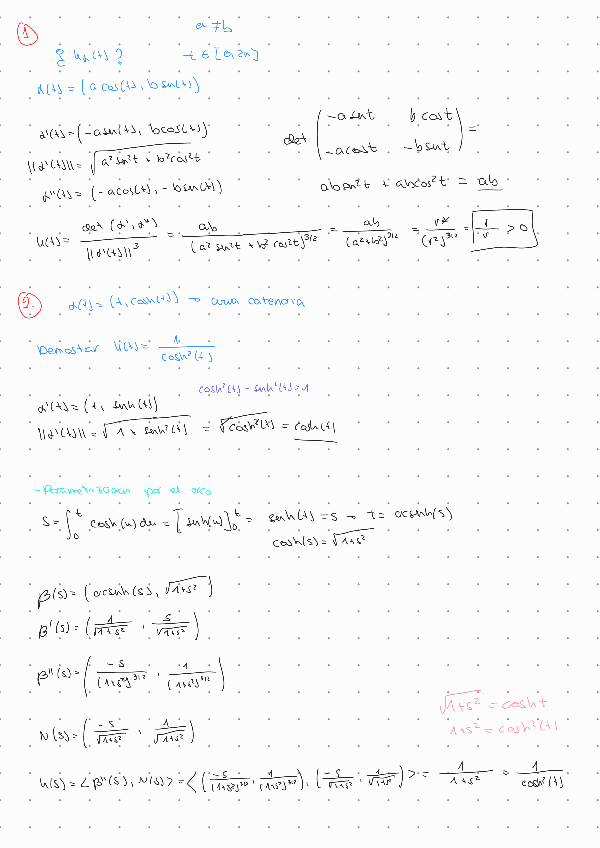 1
a ≠ b
¿ k₂(t) ? t ∈ [0, 2π]
α(t) = (a cos(t), b sen(t))
α'(t) = (-a sen(t), b cos(t))
||α'(t)|| = √(a² sen²t + b² cos²t)
α''(t) = (-a cos(t), -b sen(t))
det ( -a sen t b cos t
-a cos t -b sen t ) =
ab sen²t + ab cos²t = ab
k(t) = det(α', α'') / ||α'(t)||³ = ab / (a² sen²t + b² cos²t)^3/2 = ab / (a²+b²)^3/2 = r² / (r²)^3/2 = 1/r > 0
2. α(t) = (t, cosh(t)) → una catenaria
Demostrar k(t) = 1 / cosh²(t)
cosh²(t) - senh²(t) = 1
α'(t) = (1, senh(t))
||α'(t)|| = √(1 + senh²(t)) = √(cosh²(t)) = cosh(t)
- Parametrizacion por el arco
S = ∫₀ᵗ cosh(u) du = [senh(u)]₀ᵗ = senh(t) = s → t = arcsenh(s)
cosh(s) = √(1+s²)
β(s) = (arcsenh(s), √(1+s²))
β'(s) = (1/√(1+s²), s/√(1+s²))
β''(s) = (-s/(1+s²)^3/2, 1/(1+s²)^3/2)
√(1+s²) = cosh t
1+s² = cosh²(t)
N(s) = (-s/√(1+s²), 1/√(1+s²))
k(s) = <β''(s), N(s)> = <(-s/(1+s²)^3/2, 1/(1+s²)^3/2), (-s/√(1+s²), 1/√(1+s²))> = 1/(1+s²) = 1/cosh²(t)